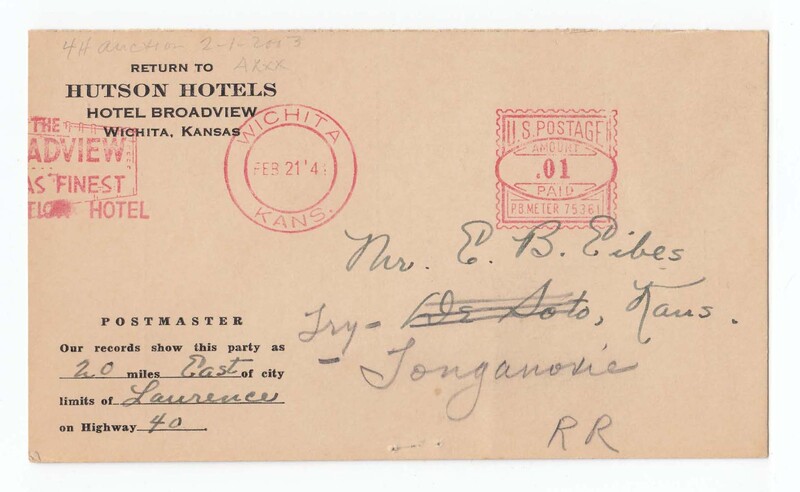 4H auction 2-1-2003
RETURN TO
HUTSON HOTELS
HOTEL BROADVIEW
WICHITA, KANSAS
THE
ADVIEW
AS' FINEST
HOTEL
WICHITA
FEB 21 '4
KANS.
U.S. POSTAGE
AMOUNT
.01
PAID
P.B. METER 75361
Mr. E. B. Eibes
Try - De Soto, Kans.
- Tonganoxie
RR
POSTMASTER
Our records show this party as
20 miles East of city
limits of Laurence
on Highway 40.